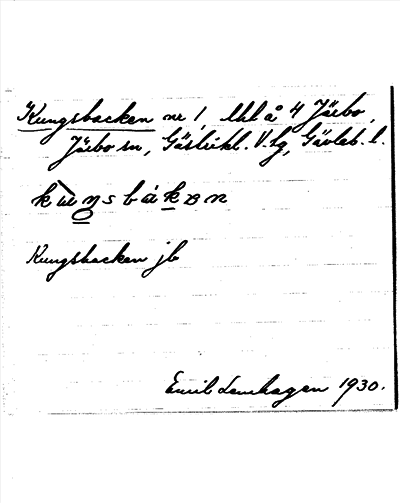 Kungsbacken nr 1, lhl å 4 Järbo,
Järbo sn, Gästrikl. V. tg, Gävleb. l.
kùŋsbákən
Kungsbacken jb
Emil Lenhagen 1930.